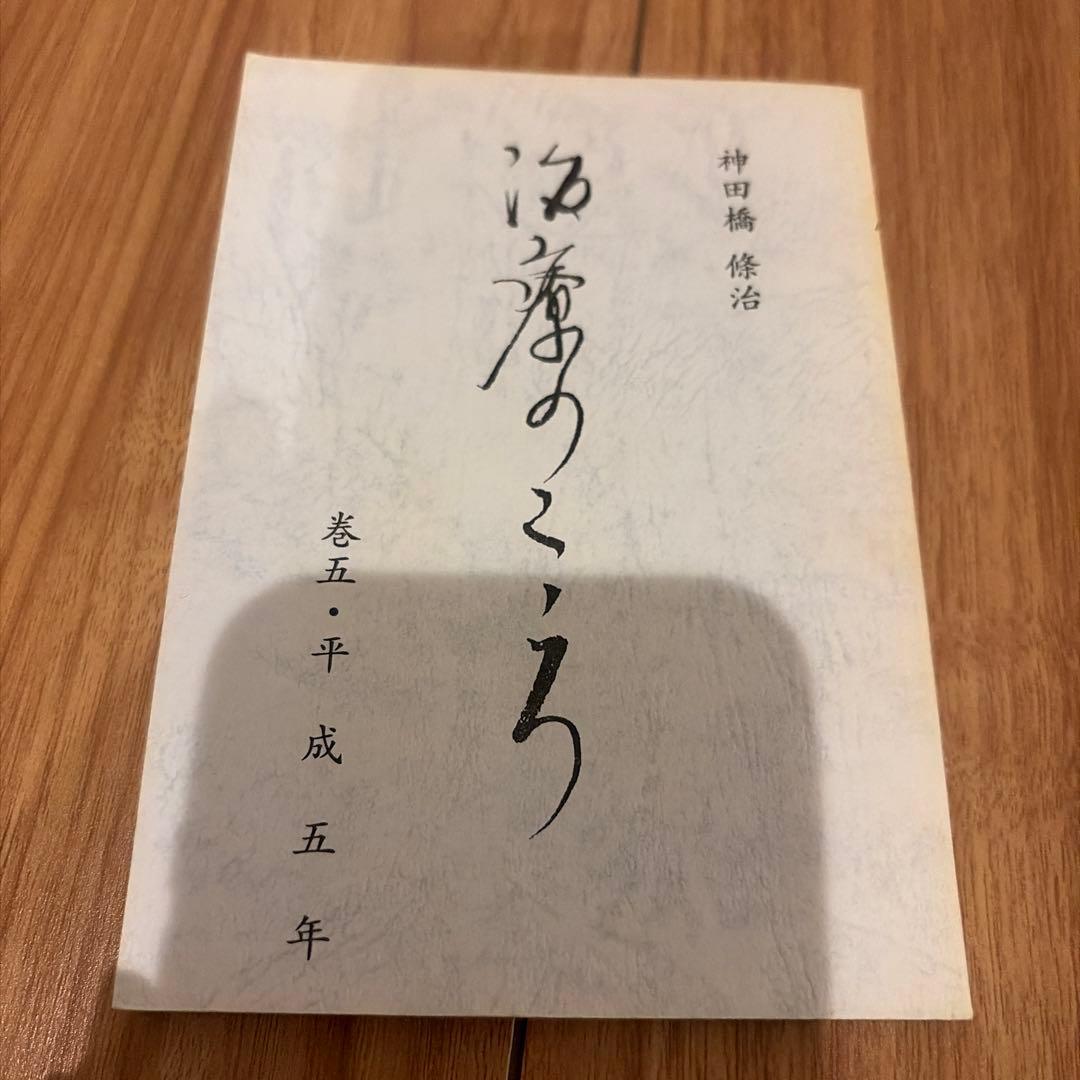 神田橋 條治
治療のこゝろ
巻五・平成五年